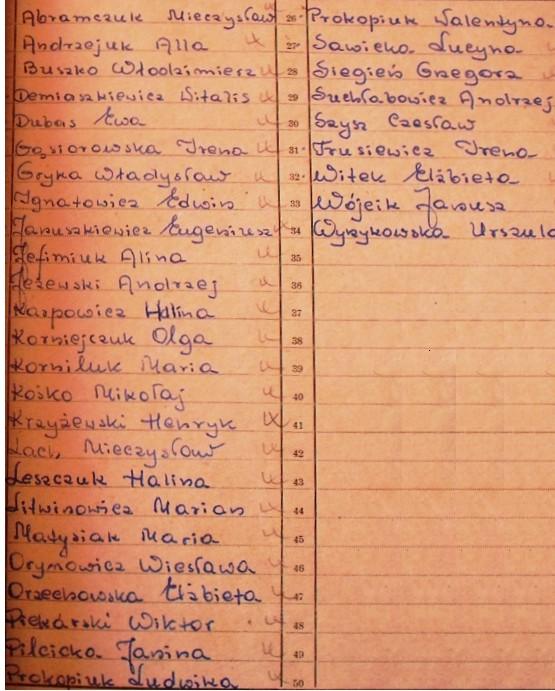 Abramczuk Mieczysław
Andrzejuk Alla
Buszko Włodzimierz
Demiaszkiewicz Witalis
Dubas Ewa
Gąsiorowska Irena
Gryka Władysław
Ignatowicz Edwin
Januszkiewicz Eugeniusz
Jefimiuk Alina
Jeżewski Andrzej
Karpowicz Halina
Korniejczuk Olga
Korniluk Maria
Kośko Mikołaj
Krzyżewski Henryk
Lach Mieczysław
Leszczuk Halina
Litwinowicz Marian
Matysiak Maria
Orymowicz Wiesława
Orzechowska Elżbieta
Piekarski Wiktor
Pilcicka Janina
Prokopiuk Ludwika
26 Prokopiuk Walentyna
27 Sawicka Lucyna
28 Siegień Grzegorz
29 Suchłabowicz Andrzej
30 Szysz Czesław
31 Trusiewicz Irena
32 Witek Elżbieta
33 Wójcik Janusz
34 Wyrzykowska Urszula
35
36
37
38
39
40
41
42
43
44
45
46
47
48
49
50